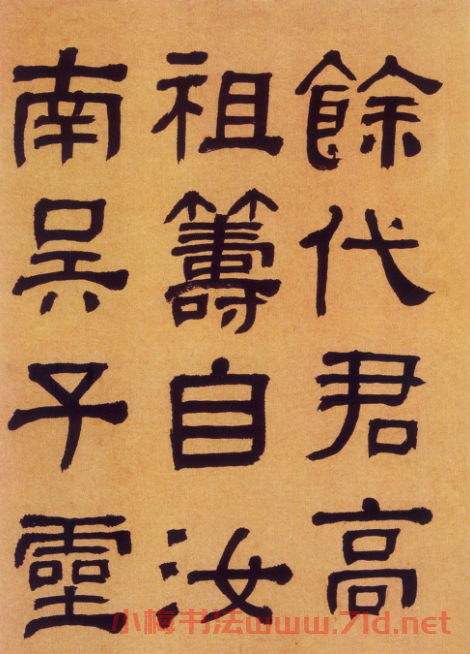 餘代君高
祖籌自汝
南吴子靈
小梅书法www.7ld.net